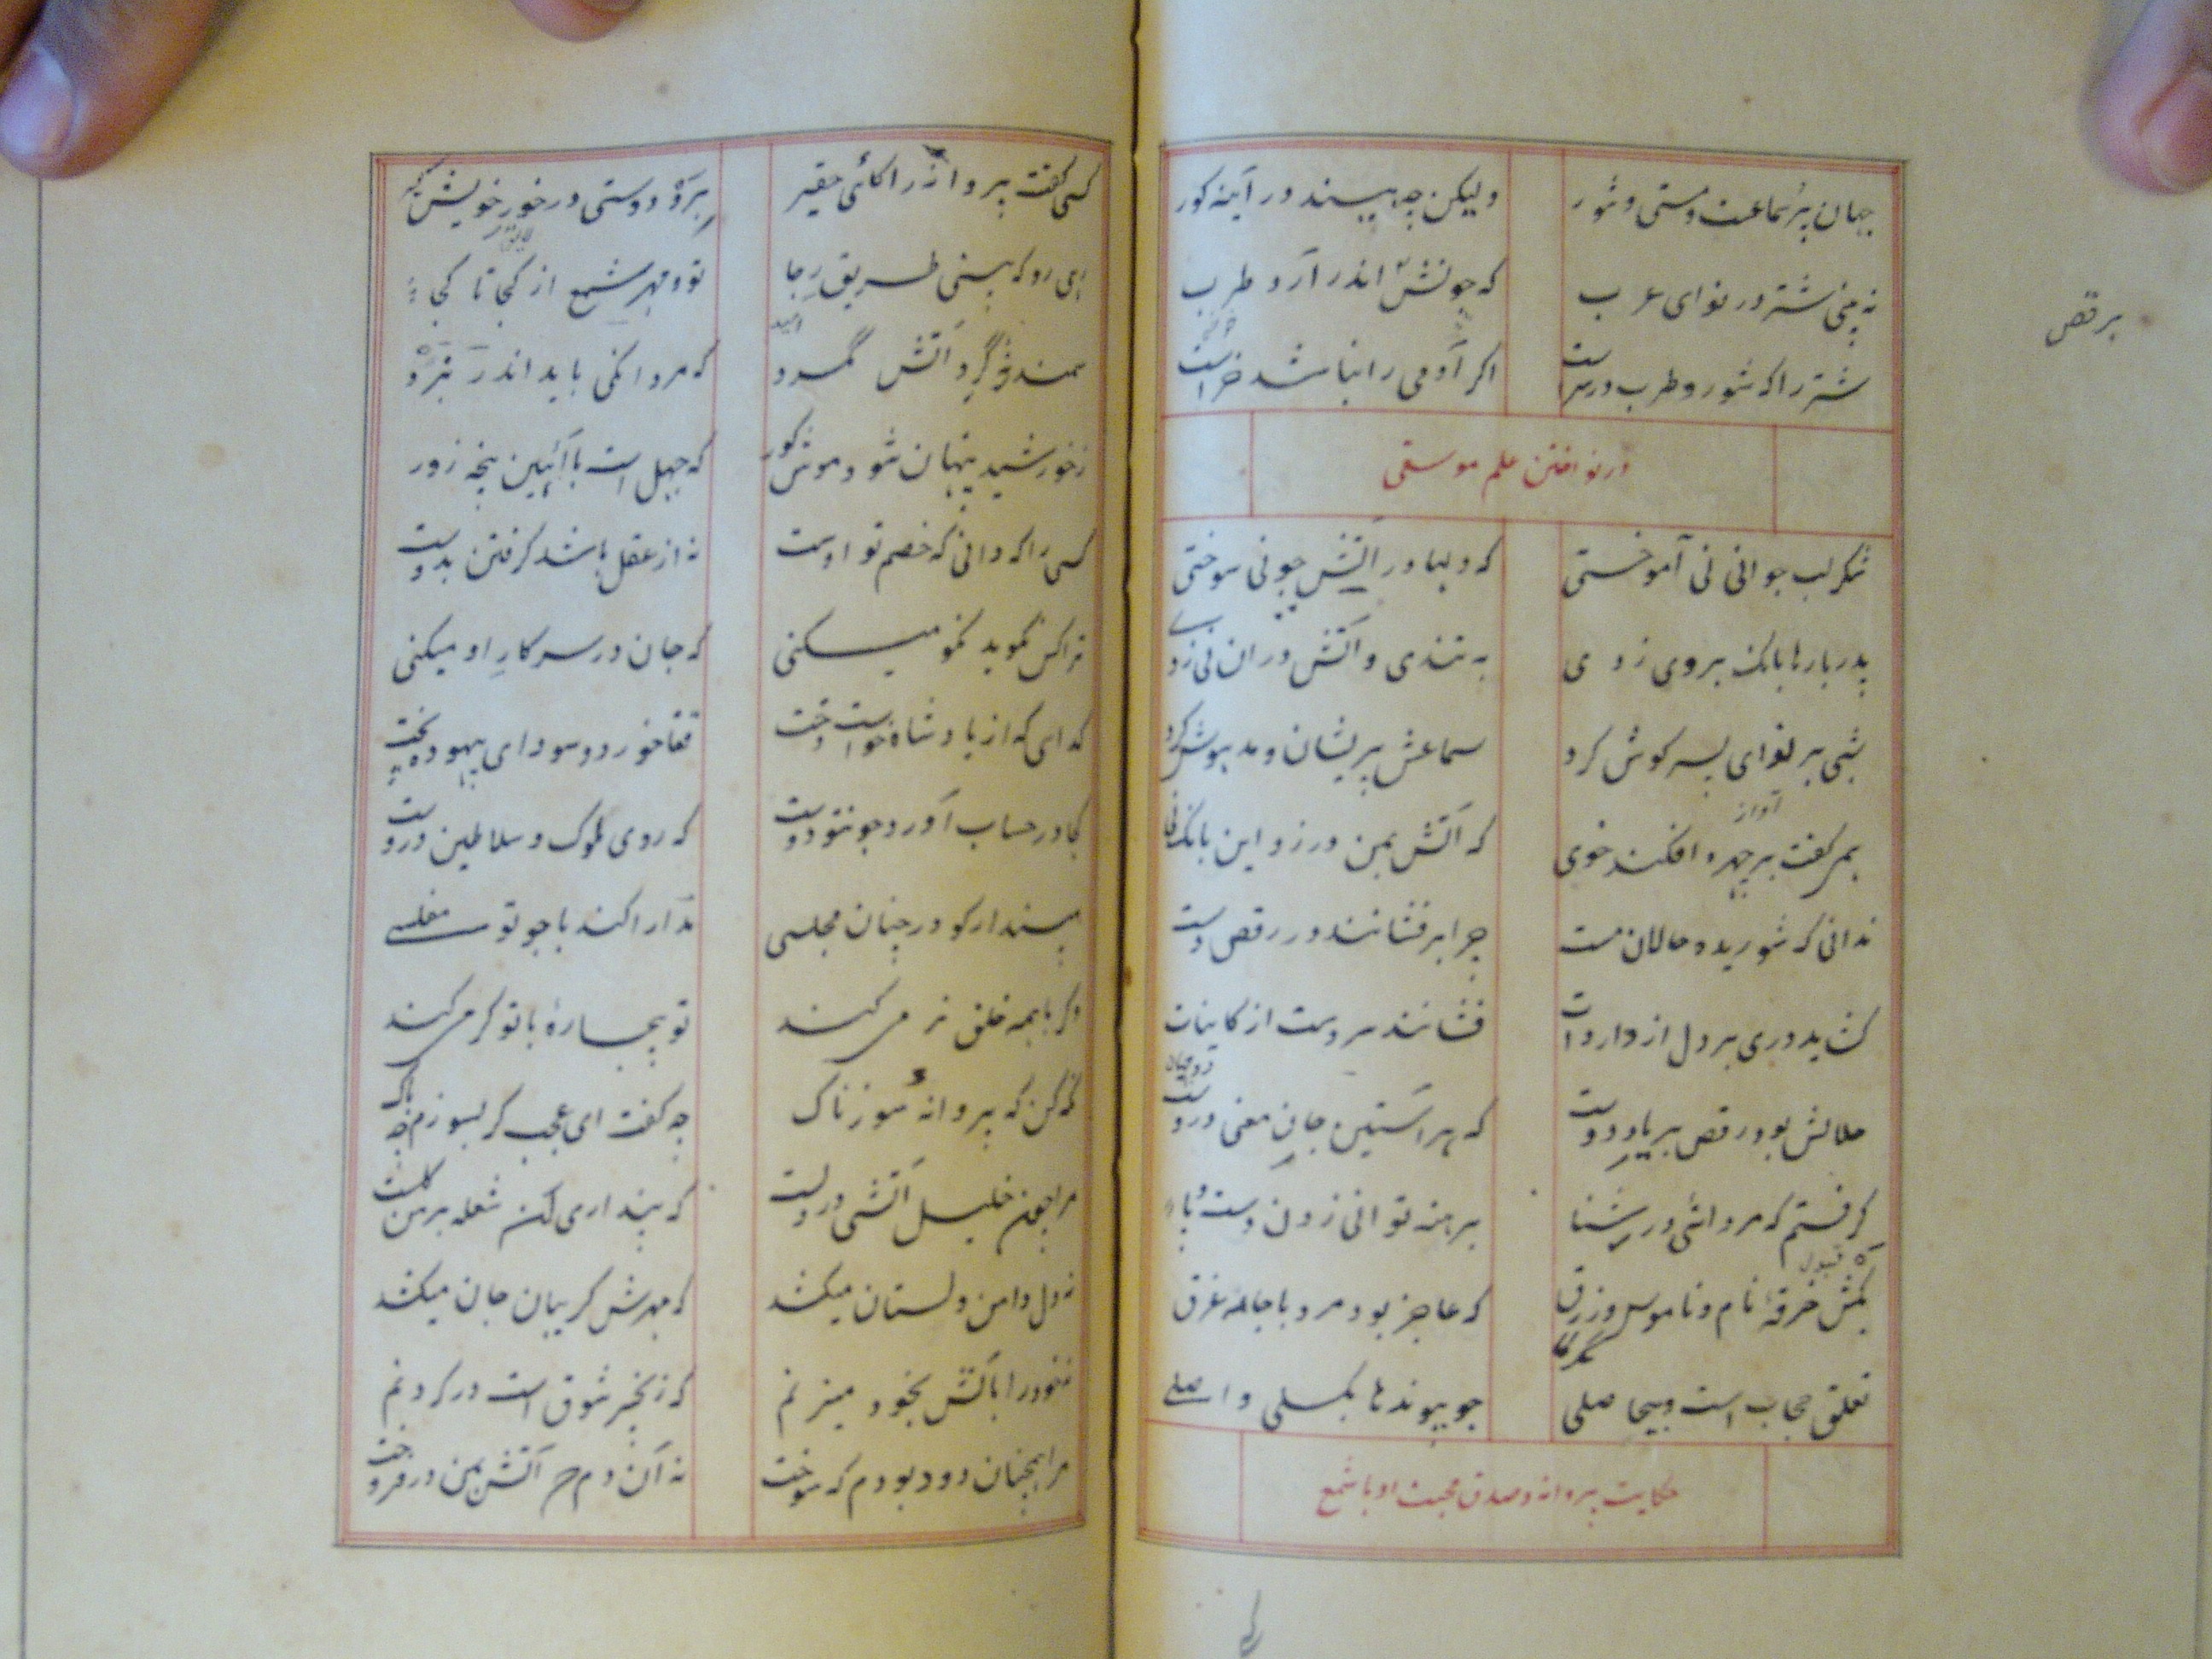 جهان پر سماعست و مستی و شور ولیکن چه بیند در آینه کور
نه بینی شتر در نوای عرب که چونش اندر آرد طرب
برقص
شتر را که شور و طرب در سراست اگر آدمی را نباشد خراست
در نواختن علم موسیقی
شکر لب جوانی نی آموختی که دلها در آتش چو نی سوختی
پدر بارها بانگ بروی زدی به تندی و آتش دران نی زدی
شبی بر نوای پسر کوش کرد سماعش پریشان و مدهوش کرد
آواز
همی کفت بر چهره افکند خوی که آتش بمن در زد این بانگ نی
ندانی که شوریده حالان مست چرا برفشانند در رقص دست
کشاید دری بر دل از واردات فشانند سر و دست از کاینات
دو جهان
حلالش بود رقص بر یاد دوست که هر آستین جان معنی دروست
کرفتم که مردانهٔ در شنا برهنه توانی زدن دست و پا
بکش خرقهٔ نام و ناموس و زرق که عاجز بود مرد با جامه غرق
تعلق حجاب است و بیحاصلی چو پیوندها بکسلی واصلی
حکایت پروانه و صدق محبت او با شمع
کسی کفت پروانه را کای حقیر برو دوستی در خور خویش کیر
لایق
رهی رو که بینی طریق رجا تو و مهر شمع از کجا تا کجا
امید
سمندر نهٔ کرد آتش مکرد که مردانکی باید اندر نبرد
ز خورشید پنهان شود موش کور که جهل است با آهنین پنجه زور
کسی را که دانی که خصم تو اوست نه از عقل باشد کرفتن بدوست
ترا کس نکوید نکو میکنی که جان در سر کار او میکنی
کدای که از پادشاه خواست دخت قفا خورد و سودای بیهوده پخت
کجا در حساب آورد چو تو دوست که روی ملوک و سلاطین دروست
مپندار کو در چنان مجلسی مدارا کند با چو تو مفلسی
وکر با همه خلق نرمی کند تو بیچارهٔ با تو کرمی کند
نکه کن که پروانه سوزناک چه کفت ای عجب کر بسوزم چه باک
مرا چون خلیل آتشی در دلست که پنداری این شعله بر من کلست
نه دل دامن دلستان میکشد که مهرش کریبان جان میکشد
نه خود را باتش بخود میزنم که زنجیر شوق است در کردنم
مرا همچنان دور بودم که سوخت نه آن دم که آتش بمن در فروخت